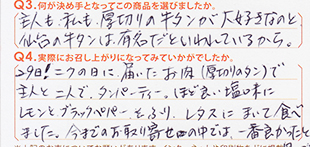 Q3.何が決め手となってこの商品を選びましたか。
主人も、私も、厚切りの牛タンが大好きなのと
仙台の牛タンは有名だといわれているから。
Q4.実際にお召し上がりになってみていかがでしたか。
29日！ニクの日に、届いたお肉(厚切りのタン)で
主人と二人で、タンパーティー。ほど良い塩味に
レモンとブラックペパーをふり、レタスにまいて食べ
ました。今までのお取り寄せの中では、一番良かったと